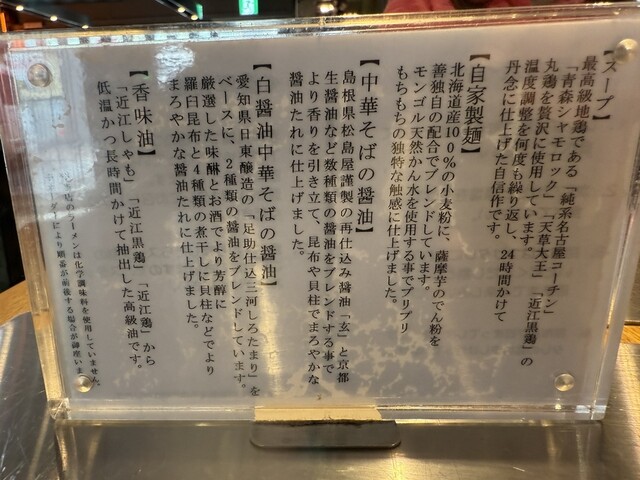 【スープ】
最高級地鶏である「純系名古屋コーチン」
「青森シャモロック」「天草大王」「近江黒鶏」の
丸鶏を贅沢に使用しています。
温度調整を何度も繰り返し、24時間かけて
丹念に仕上げた自信作です。
【自家製麺】
北海道産100%の小麦粉に、薩摩芋のでん粉を
善独自の配合でブレンドしています。
モンゴル天然かん水を使用する事でプリプリ
もちもちの独特な触感に仕上げました。
【中華そばの醤油】
島根県松島屋謹製の再仕込み醤油「玄」と京都
生醤油など数種類の醤油をブレンドする事で
より香りを引き立て、昆布や貝柱でまろやかな
醤油たれに仕上げました。
【白醤油中華そばの醤油】
愛知県日東醸造の「足助仕込三河しろたまり」を
ベースに、2種類の醤油をブレンドしています。
厳選した味醂とお酒でより芳醇に
羅臼昆布と4種類の煮干しに貝柱などでより
まろやかな醤油たれに仕上げました。
【香味油】
「近江しゃも」「近江黒鶏」「近江鶏」から
低温かつ長時間かけて抽出した高級油です。
店のラーメンは化学調味料を使用していません。
ダーにより順番が前後する場合が御座いま